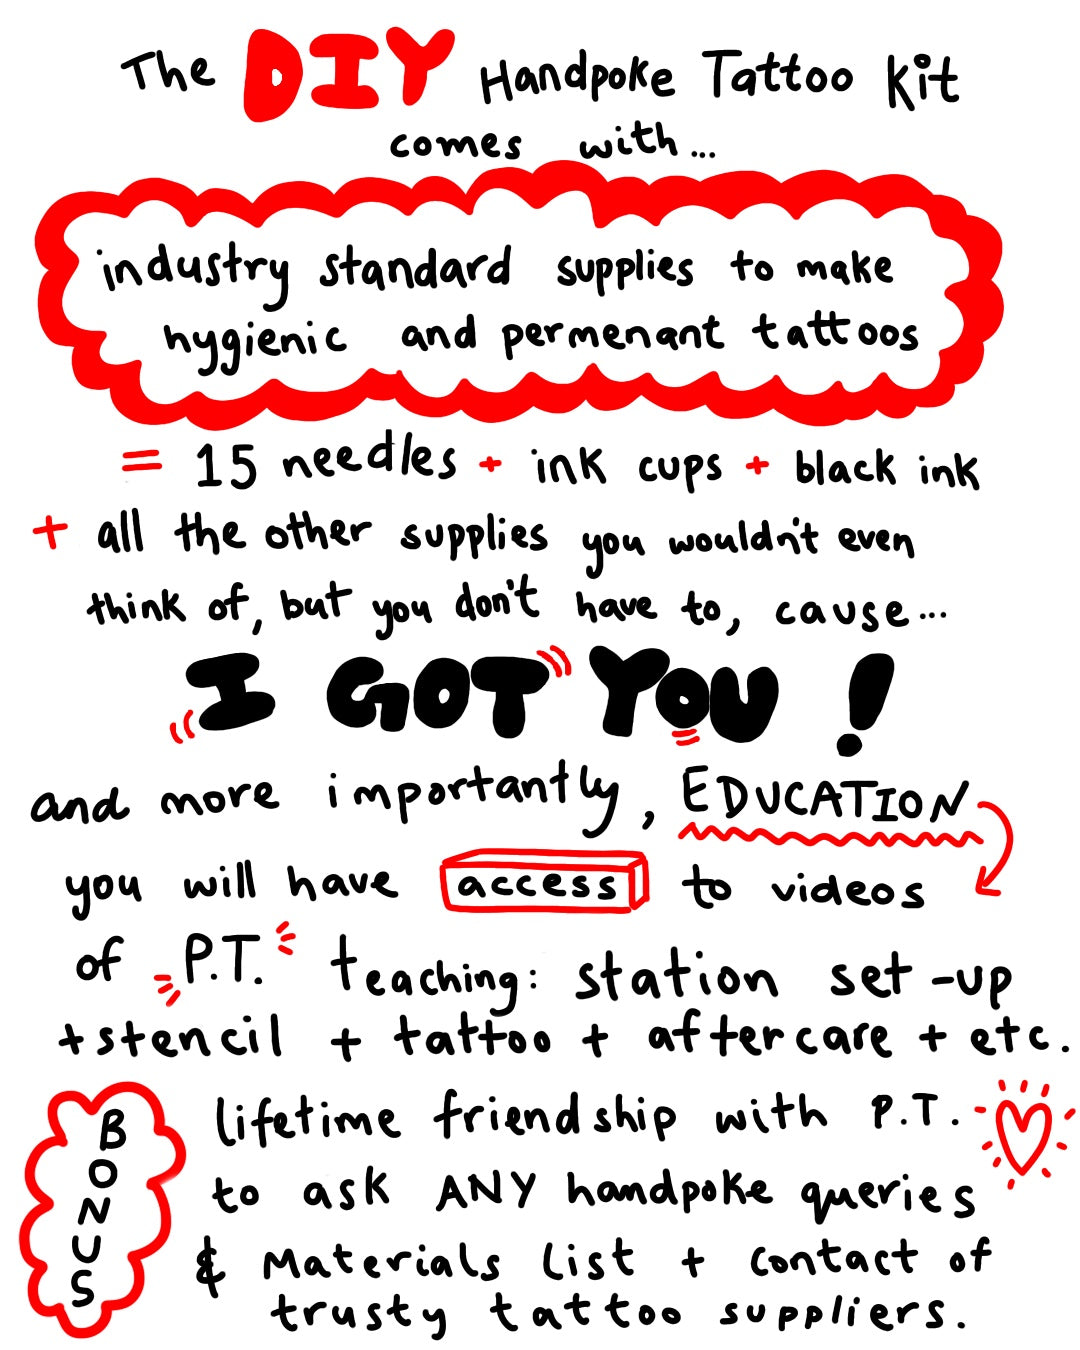 The DIY Handpoke Tattoo Kit
comes with...
industry standard supplies to make
hygienic and permenant tattoos
= 15 needles + ink cups + black ink
+ all the other supplies you wouldn't even
think of, but you don't have to, cause...
I GOT YOU!
and more importantly, EDUCATION
you will have access to videos
of P.T. teaching: station set-up
+ stencil + tattoo + aftercare + etc.
BONUS
lifetime friendship with P.T.
to ask ANY handpoke queries
& Materials List + contact of
trusty tattoo suppliers.